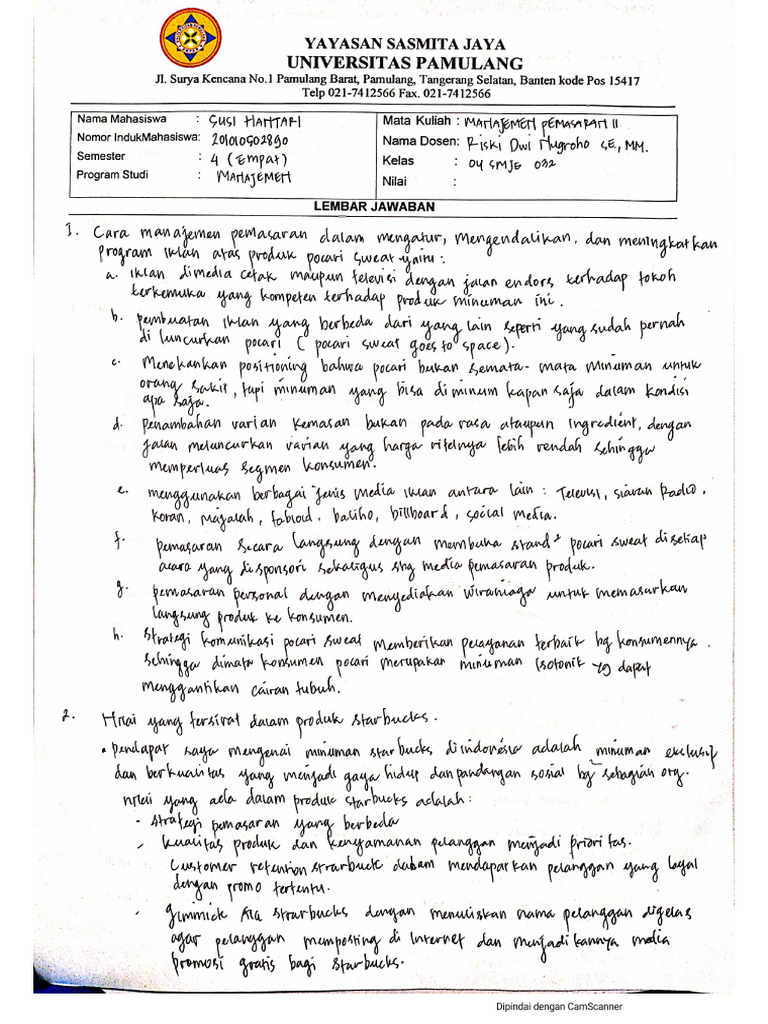 YAYASAN SASMITA JAYA
UNIVERSITAS PAMULANG
Jl. Surya Kencana No.1 Pamulang Barat, Pamulang, Tangerang Selatan, Banten kode Pos 15417
Telp 021-7412566 Fax. 021-7412566
Nama Mahasiswa : SUSI HANTARI
Nomor IndukMahasiswa: 201010502890
Semester : 4 (Empat)
Program Studi : MANAJEMEN
Mata Kuliah : MANAJEMEN PEMASARAN II
Nama Dosen: Riski Dwi Nugroho SE, MM.
Kelas : 04 SMJE 032
Nilai :
LEMBAR JAWABAN
1. Cara manajemen pemasaran dalam mengatur, Mengendalikan, dan meningkatkan
program iklan atas produk pocari sweat yaini :
a. iklan dimedia cetak maupun televisi dengan jalan endors terhadap tokoh
terkemuka yang kompeten terhadap produk minuman ini.
b. pembuatan iklan yang berbeda dari yang lain seperti yang sudah pernah
di luncurkan pocari ( pocari sweat goes to space).
c. Menekankan positioning bahwa pocari bukan semata-mata minuman untuk
orang sakit, tapi minuman yang bisa diminum kapan saja dalam kondisi
apa saja.
d. penambahan varian kemasan bukan pada rasa ataupun ingredient, dengan
jalan meluncurkan varian yang harga ritelnya lebih rendah sehingga
memperluas segmen konsumen.
e. menggunakan berbagai jenis media iklan antara lain : Televisi, siaran Radio,
koran, majalah, tabloid, baliho, billboard, social media.
f. pemasaran secara langsung dengan membuka stand² pocari sweat disetiap
acara yang disponsori sekaligus sbg media pemasaran produk.
g. pemasaran personal dengan menyediakan wiraniaga untuk memasarkan
langsung produk ke konsumen.
h. strategi komunikasi pocari sweat memberikan pelayanan terbaik bg konsumennya.
sehingga dimata konsumen pocari merupakan minuman isotonik yg dapat
menggantikan cairan tubuh.
2. Nilai yang tersirat dalam produk starbucks.
• pendapat saya mengenai minuman starbucks diindonesia adalah minuman exclusif
dan berkualitas yang menjadi gaya hidup dan pandangan sosial bg sebagian org.
nilai yang ada dalam produk starbucks adalah :
- strategi pemasaran yang berbeda
- kualitas produk dan kenyamanan pelanggan menjadi prioritas.
Customer retention strarbuck dalam mendapatkan pelanggan yang loyal
dengan promo tertentu.
- gimmick ala strarbucks dengan menuliskan nama pelanggan digelas
agar pelanggan memposting di internet dan menjadikannya media
promosi gratis bagi starbucks.
Dipindai dengan CamScanner